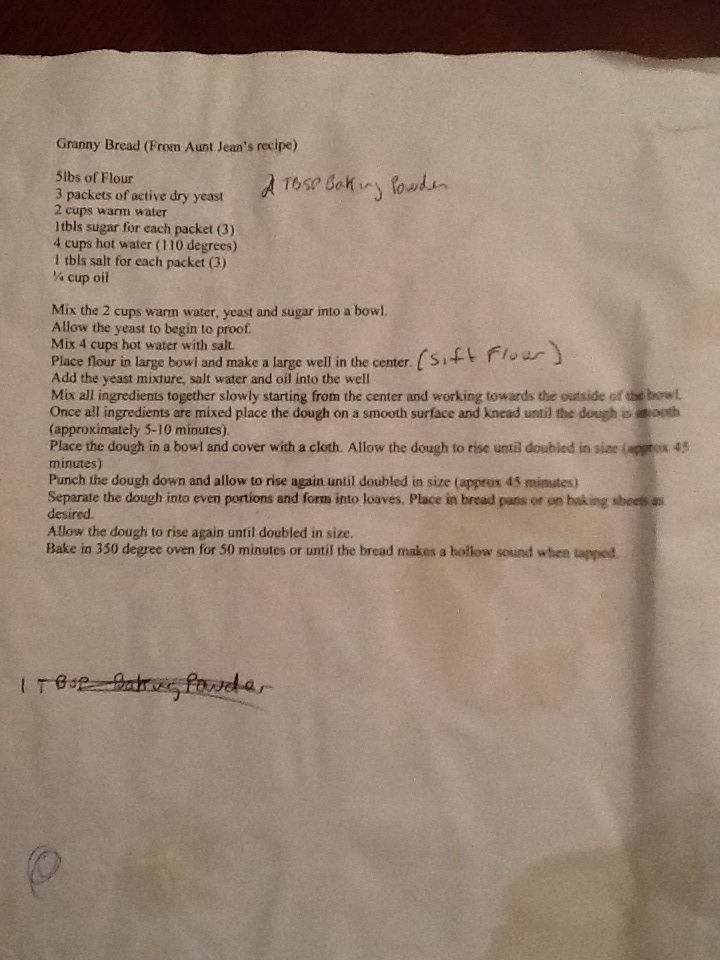 Granny Bread (From Aunt Jean's recipe)
5lbs of Flour
2 TBSP Baking Powder
3 packets of active dry yeast
2 cups warm water
1tbls sugar for each packet (3)
4 cups hot water (110 degrees)
1 tbls salt for each packet (3)
¼ cup oil
Mix the 2 cups warm water, yeast and sugar into a bowl.
Allow the yeast to begin to proof.
Mix 4 cups hot water with salt.
Place flour in large bowl and make a large well in the center. (Sift Flour)
Add the yeast mixture, salt water and oil into the well
Mix all ingredients together slowly starting from the center and working towards the outside of the bowl.
Once all ingredients are mixed place the dough on a smooth surface and knead until the dough is smooth
(approximately 5-10 minutes).
Place the dough in a bowl and cover with a cloth. Allow the dough to rise until doubled in size (approx 45
minutes)
Punch the dough down and allow to rise again until doubled in size (approx 45 minutes)
Separate the dough into even portions and form into loaves. Place in bread pans or on baking sheets as
desired.
Allow the dough to rise again until doubled in size.
Bake in 350 degree oven for 50 minutes or until the bread makes a hollow sound when tapped.
1 TBSP Baking Powder